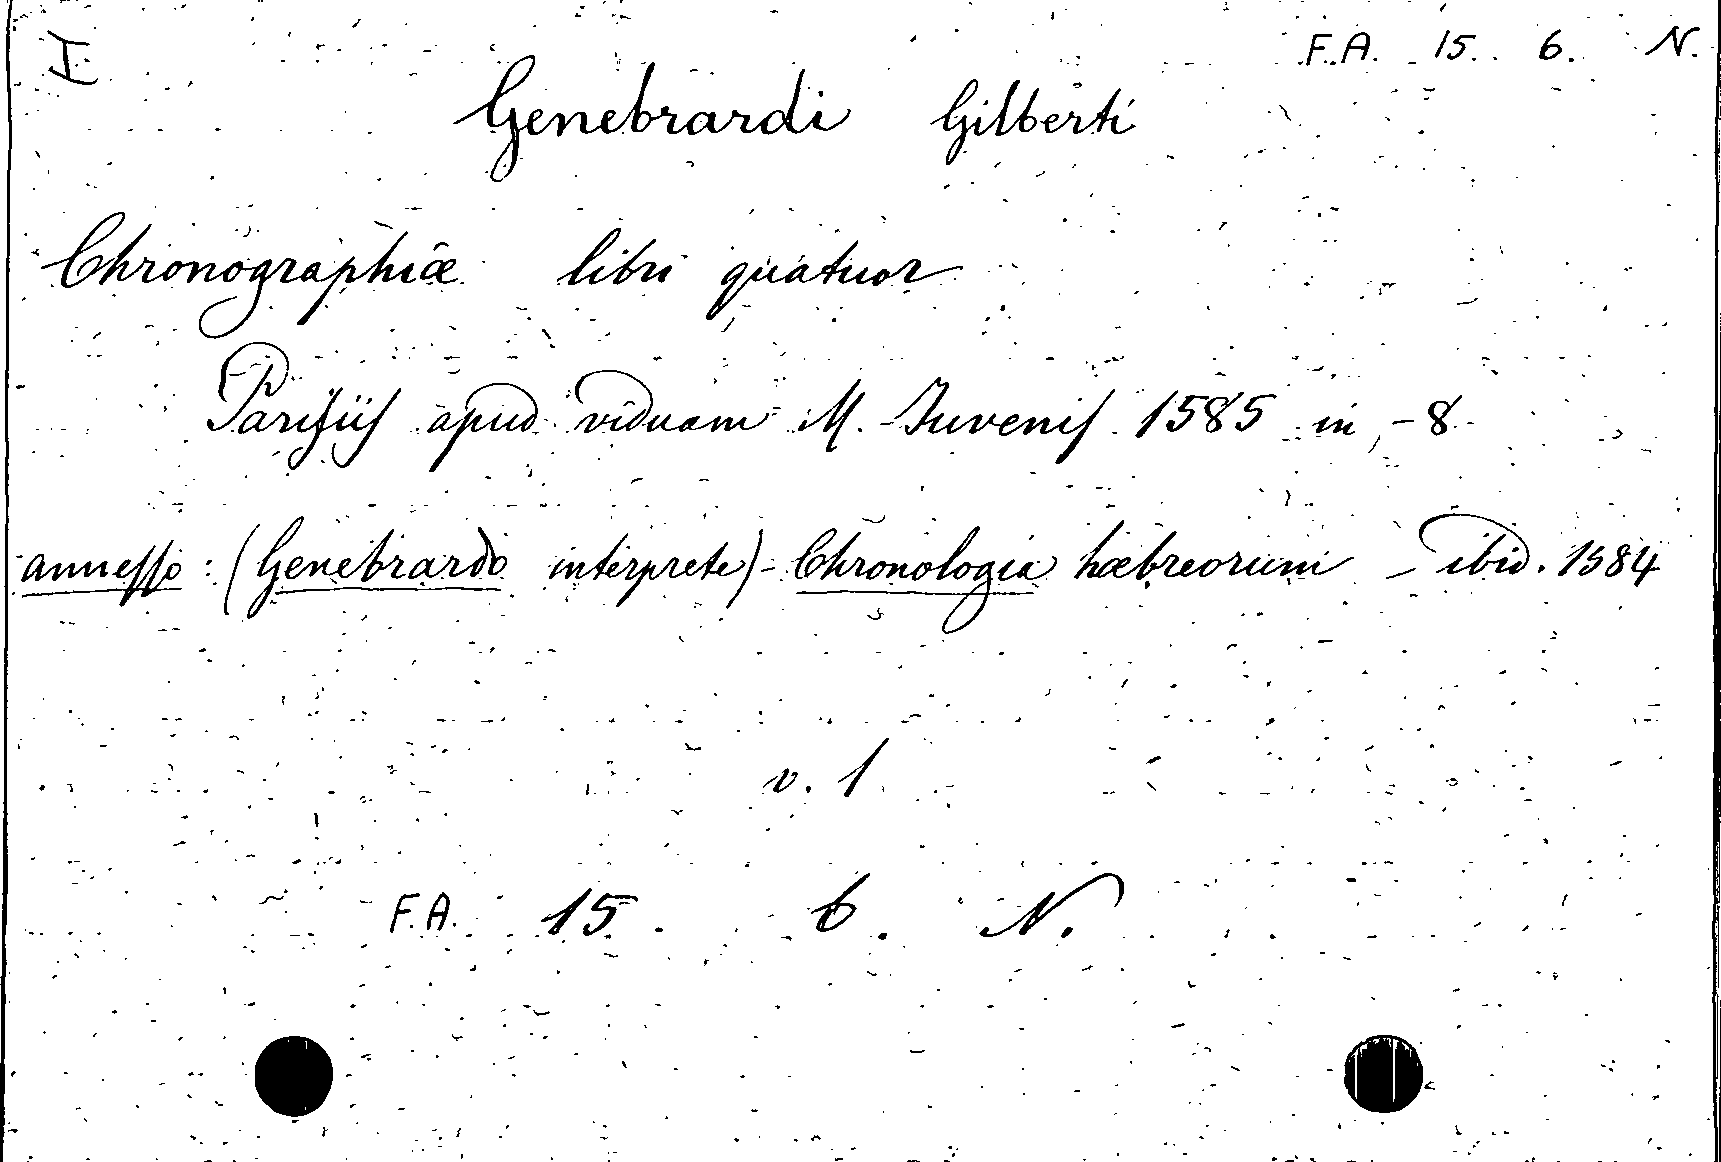 I F.A. 15. 6. N.
Genebrardi Gilberti
Chronographiæ libri quatuor
Parisiis apud viduam M. Juvenis 1585 in-8
annesso: (Genebrardo interprete) - Chronologia hæbreorum - ibid. 1584
v. 1
F.A. 15. 6. N.